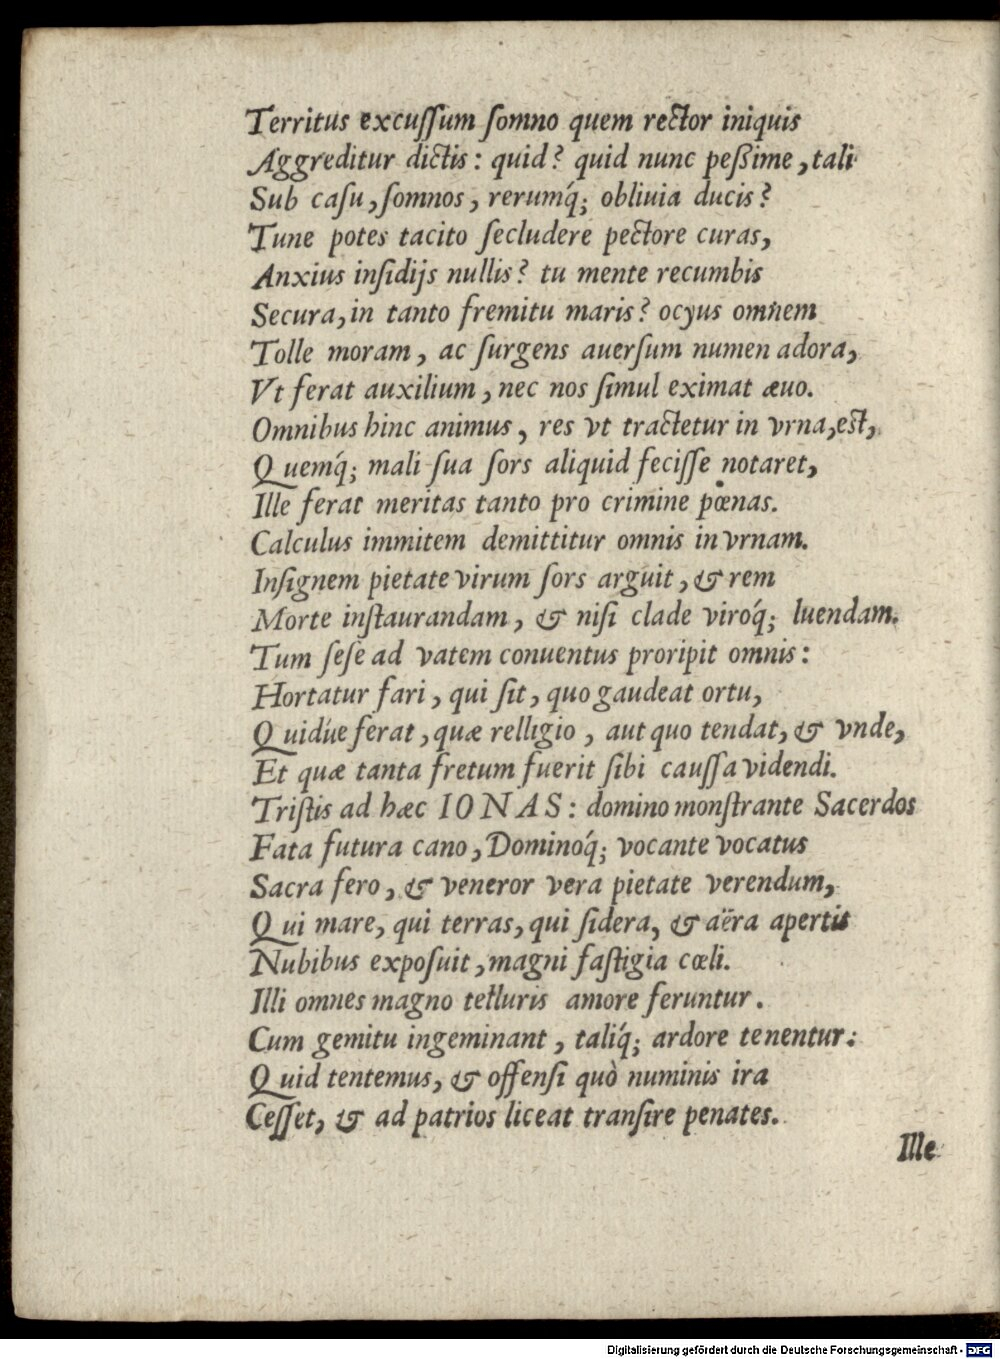 Territus excuſſum ſomno quem rector iniquis
Aggreditur dictis: quid? quid nunc peßime, tali
Sub caſu, ſomnos, rerumq́; obliuia ducis?
Tune potes tacito ſecludere pectore curas,
Anxius inſidijs nullis? tu mente recumbis
Secura, in tanto fremitu maris? ocyus omnem
Tolle moram, ac ſurgens auerſum numen adora,
Vt ferat auxilium, nec nos ſimul eximat æuo.
Omnibus hinc animus, res vt tractetur in vrna, eſt,
Quemq́; mali ſua ſors aliquid feciſſe notaret,
Ille ferat meritas tanto pro crimine pœnas.
Calculus immitem demittitur omnis in vrnam.
Inſignem pietate virum ſors arguit, & rem
Morte inſtaurandam, & niſi clade viroq́; luendam.
Tum ſeſe ad vatem conuentus proripit omnis:
Hortatur fari, qui ſit, quo gaudeat ortu,
Quidúe ferat, quæ relligio, aut quo tendat, & vnde,
Et quæ tanta fretum fuerit ſibi cauſſa videndi.
Triſtis ad hæc IONAS: domino monſtrante Sacerdos
Fata futura cano, Dominoq́; vocante vocatus
Sacra fero, & veneror vera pietate verendum,
Qui mare, qui terras, qui ſidera, & aëra apertis
Nubibus expoſuit, magni faſtigia cœli.
Illi omnes magno telluris amore feruntur.
Cum gemitu ingeminant, taliq́; ardore tenentur:
Quid tentemus, & offenſi quò numinis ira
Ceſſet, & ad patrios liceat tranſire penates.
Ille
Digitalisierung gefördert durch die Deutsche Forschungsgemeinschaft - DFG